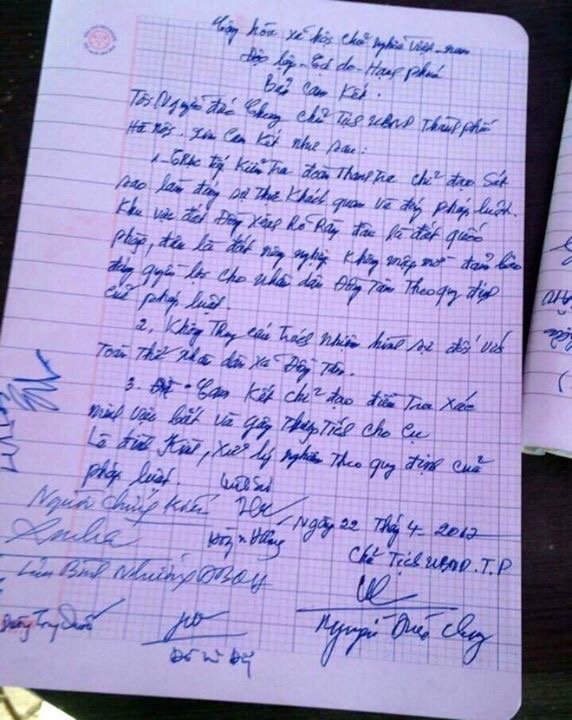 Cộng hòa xã hội chủ nghĩa Việt nam
Độc lập - Tự do - Hạnh phúc
Bản Cam Kết.
Tôi Nguyễn Đức Chung chủ tịch UBND Thành phố
Hà Nội. Xin Cam Kết như sau:
1. Trực tiếp kiểm Tra đoàn Thanh Tra chỉ đạo Sát
sao làm đúng sự thật Khách quan và đúng pháp luật.
Khu vực đất Đồng Sênh đâu là đất quốc
phòng, đâu là đất nông nghiệp Không mập mờ đảm bảo
đúng quyền lợi cho nhân dân Đồng Tâm Theo quy định
của pháp luật.
2, Không Truy cứu Trách nhiệm hình sự đối với
Toàn Thể nhân dân xã Đồng Tâm.
3. Cam Kết chỉ đạo điều Tra Xác
minh việc bắt và gây Thương Tích cho Cụ
Lê đình Kình, Xử lý nghiêm Theo quy định của
pháp luật.
Người chứng Kiến
Ngày 22 Thág 4 - 2017
Chủ Tịch UBND.T.P
Lưu Bình Nhưỡng ĐBQH
Nguyễn Đức Chung